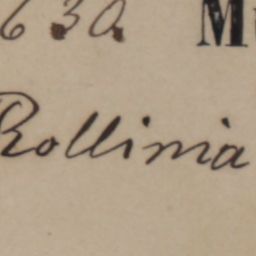 630. M
Rollinia